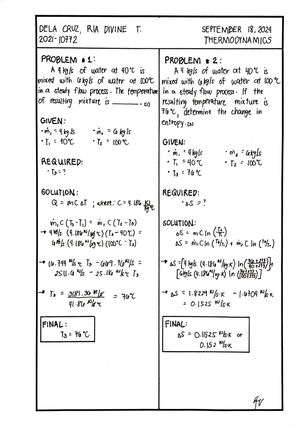 DELA CRUZ, RIA DIVINE T.
2021-10772
SEPTEMBER 18, 2024
THERMODYNAMICS
PROBLEM # 1:
A 4 kg/s of water at 40°C is
mixed with 6 kg/s of water at 100°C
in a steady flow process. The temperature
of resulting mixture is ______.
GIVEN:
· ṁ₁ = 4 kg/s · ṁ₂ = 6 kg/s
· T₁ = 40°C · T₂ = 100°C
REQUIRED:
· T₃ = ?
SOLUTION:
Q = m C ΔT ; where: C = 4.186
ṁ₁ C (T₃ - T₁) = ṁ₂ C (T₂ - T₃)
→ 4 kg/s (4.186 kJ/kg°C) (T₃ - 40°C) =
6 kg/s (4.186 kJ/kg°C) (100°C - T₃)
→ 16.744 T₃ - 669.76 =
2511.6 - 25.116 T₃
→ T₃ = 3181.36 / 41.86 = 76°C
FINAL:
T₃ = 76°C
PROBLEM # 2:
A 4 kg/s of water at 40°C is
mixed with 6 kg/s of water at 100°C
in a steady flow process. If the
resulting temperature mixture is
76°C, determine the change in
entropy.
GIVEN:
· ṁ₁ = 4 kg/s · ṁ₂ = 6 kg/s
· T₁ = 40°C · T₂ = 100°C
· T₃ = 76°C
REQUIRED:
· ΔS = ?
SOLUTION:
ΔS = m C ln
ΔS = ṁ₁ C ln (T₃/T₁) + ṁ₂ C ln (T₃/T₂)
→ ΔS = [4 kg/s (4.186 kJ/kg·K) ln
[6 kg/s (4.186 kJ/kg·K) ln
→ ΔS = 1.8229 kJ/s·K - 1.6704 kJ/s·K
= 0.1525 kJ/s·K
FINAL:
ΔS = 0.1525 kJ/s·K or
0.152 kJ/s·K